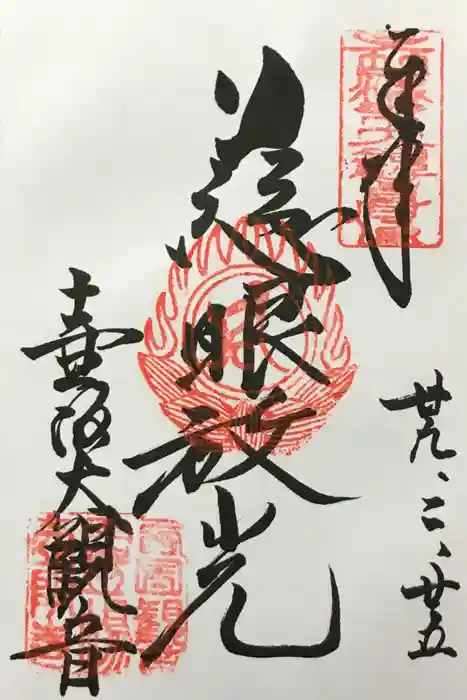 奉拝
廿九、二、廿五
慈眼放光
壷阪大観音